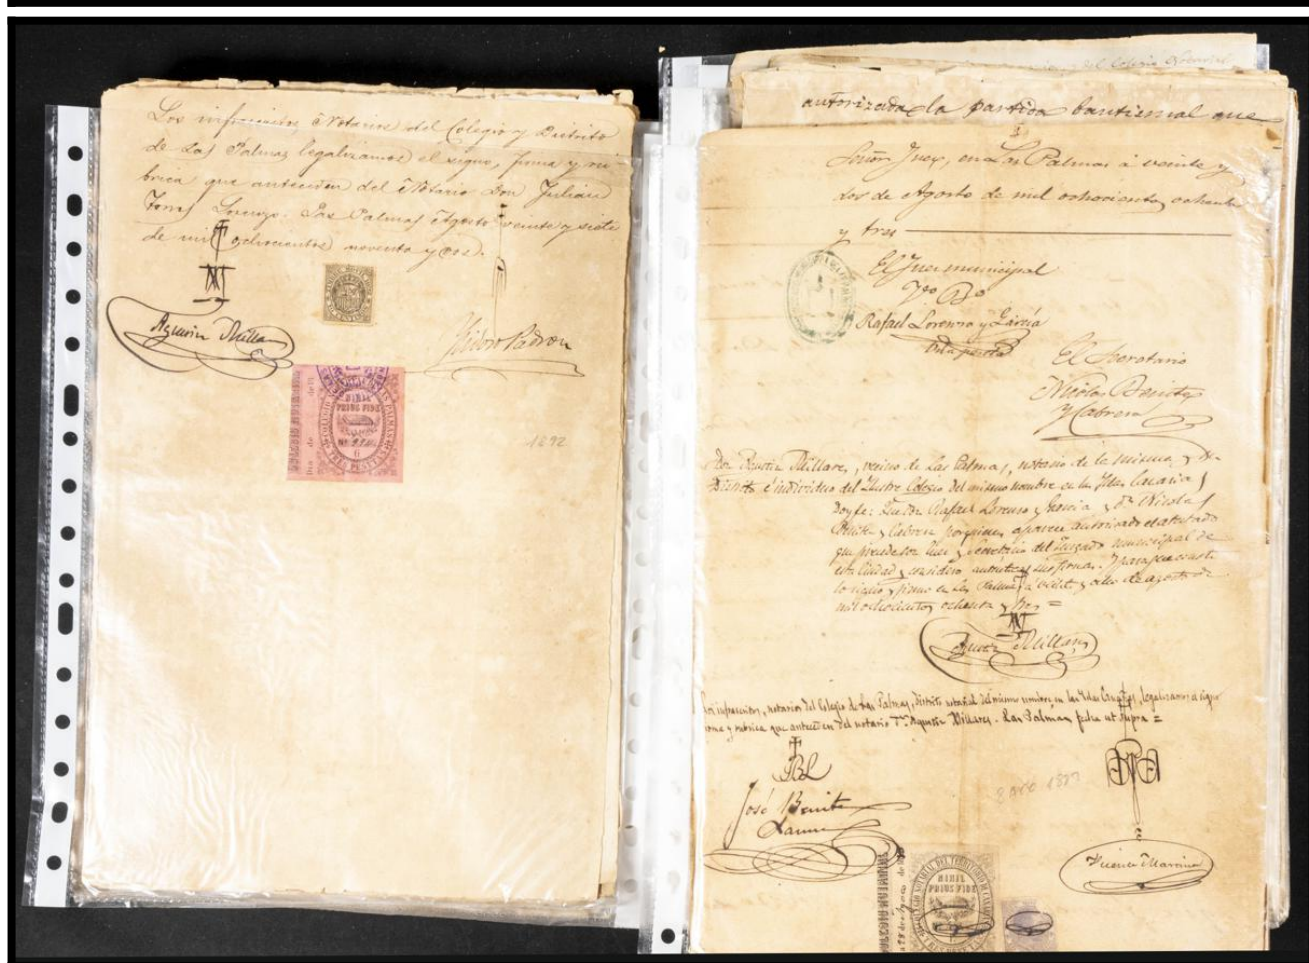 Los infrascritos Notarios del Colegio y Distrito
de Las Palmas legalizamos el signo, firma y rú-
brica que anteceden del Notario Don Julián
Torres Lorenzo. Las Palmas Agosto veinte y siete
de mil ochocientos noventa y dos.
Agustin Millares
Isidro Padron
NIHIL
PRIUS FIDE
TRES PESETAS
1892
del Colegio Notarial
autorizada la partida bautismal que
Señor Juez, en Las Palmas á veinte y
dos de Agosto de mil ochocientos ochenta
y tres
El Juez municipal
Vto Bo
Rafael Lorenzo y García
El Secretario
Nicolas Benitez
y Cabrera
Don Agustin Millares, vecino de Las Palmas, notario de la misma y su
Distrito é individuo del Ilustre Colegio del mismo nombre en las Islas Canarias
Doy fe: Que Dn Rafael Lorenzo y Garcia y Dn Nicolas
Benitez y Cabrera por quienes aparece autorizado el atestado
que precede son Juez y Secretario del Juzgado municipal de
esta Ciudad y considero autenticas sus firmas. Y para que conste
lo signo y firmo en Las Palmas á veinte y ocho de agosto de
mil ochocientos ochenta y tres =
Agustin Millares
Los infrascritos, notarios del Colegio de Las Palmas, distrito notarial del mismo nombre en las Islas Canarias, legalizamos el signo
firma y rubrica que anteceden del notario Dn Agustin Millares. Las Palmas fecha ut supra =
José Benitez
Vicente Martinez
COLEGIO NOTARIAL DEL TERRITORIO DE CANARIAS
NIHIL
PRIUS FIDE